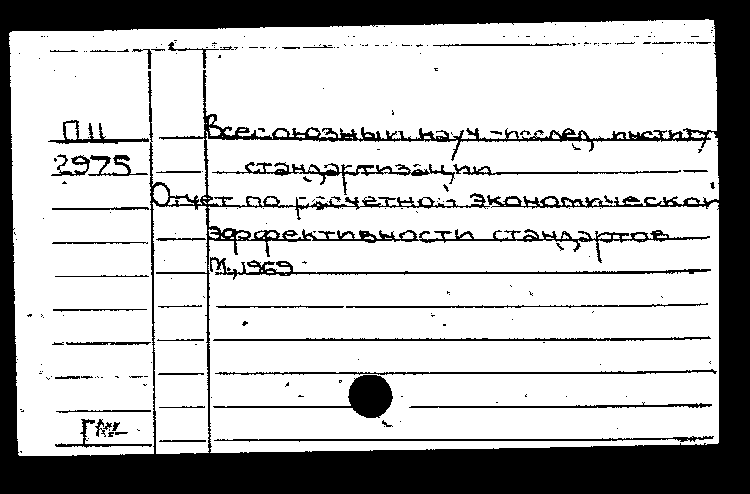 П 11
2975
Всесоюзный науч.-исслед. институт
стандартизации
Отчет по расчетной экономической
эффективности стандартов
М., 1969